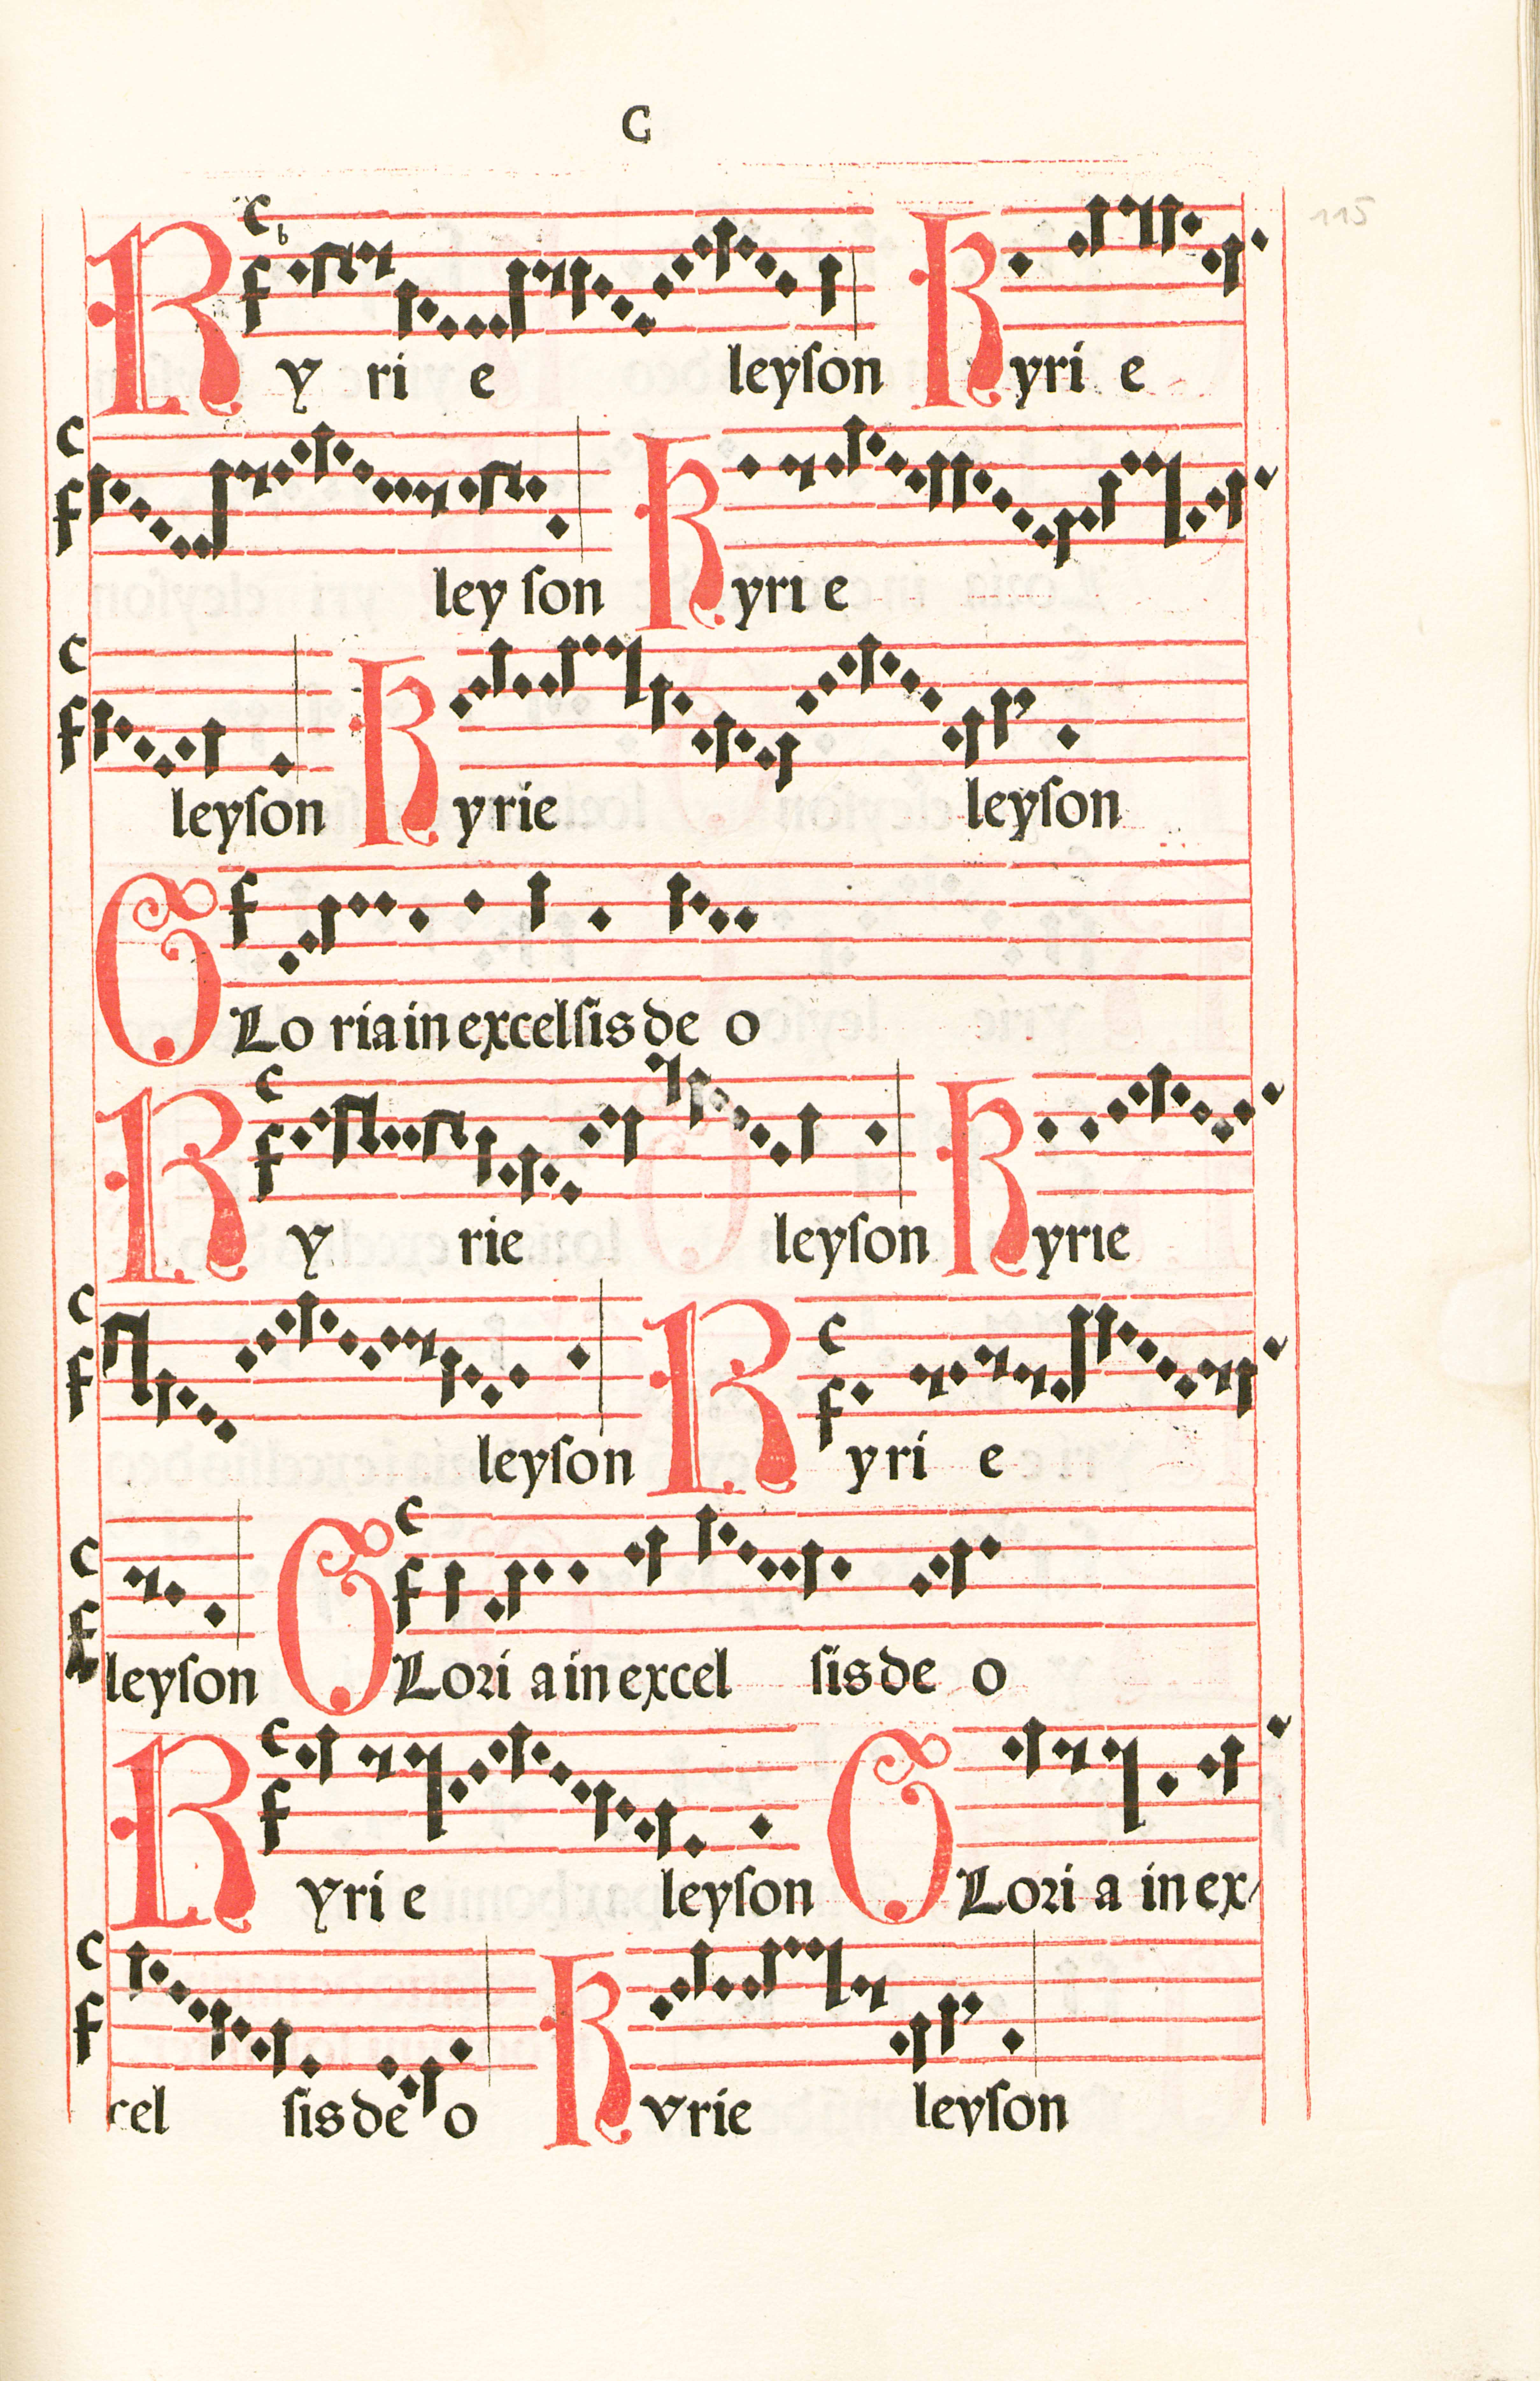 C
115
Ky ri e leyſon Kyri e
ley ſon Kyri e
leyſon Kyrie leyſon
GLo riain excelſis de o
Ky rie leyſon Kyrie
leyſon Kyri e
leyſon GLori ain excel ſis de o
Kyri e leyſon GLori a in ex/
cel ſis de o Kyrie leyſon